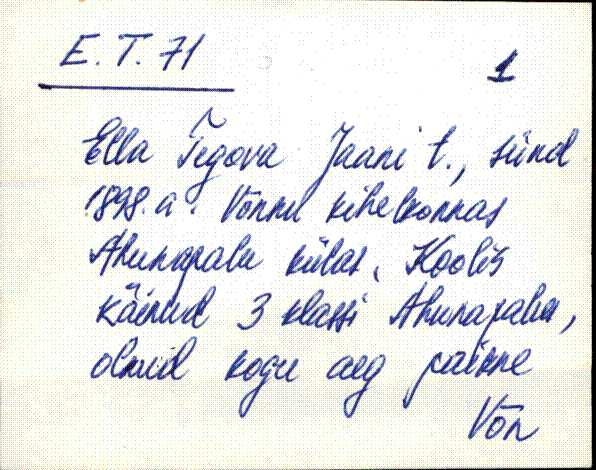 E. T. 71
1
Ella Tegova Jaani t., sünd
1898. a. Võnnu kihelkonnas
Ahunapalu külas. Koolis
käinud 3 klassi Ahunapalus,
olnud kogu aeg paikne
Võn